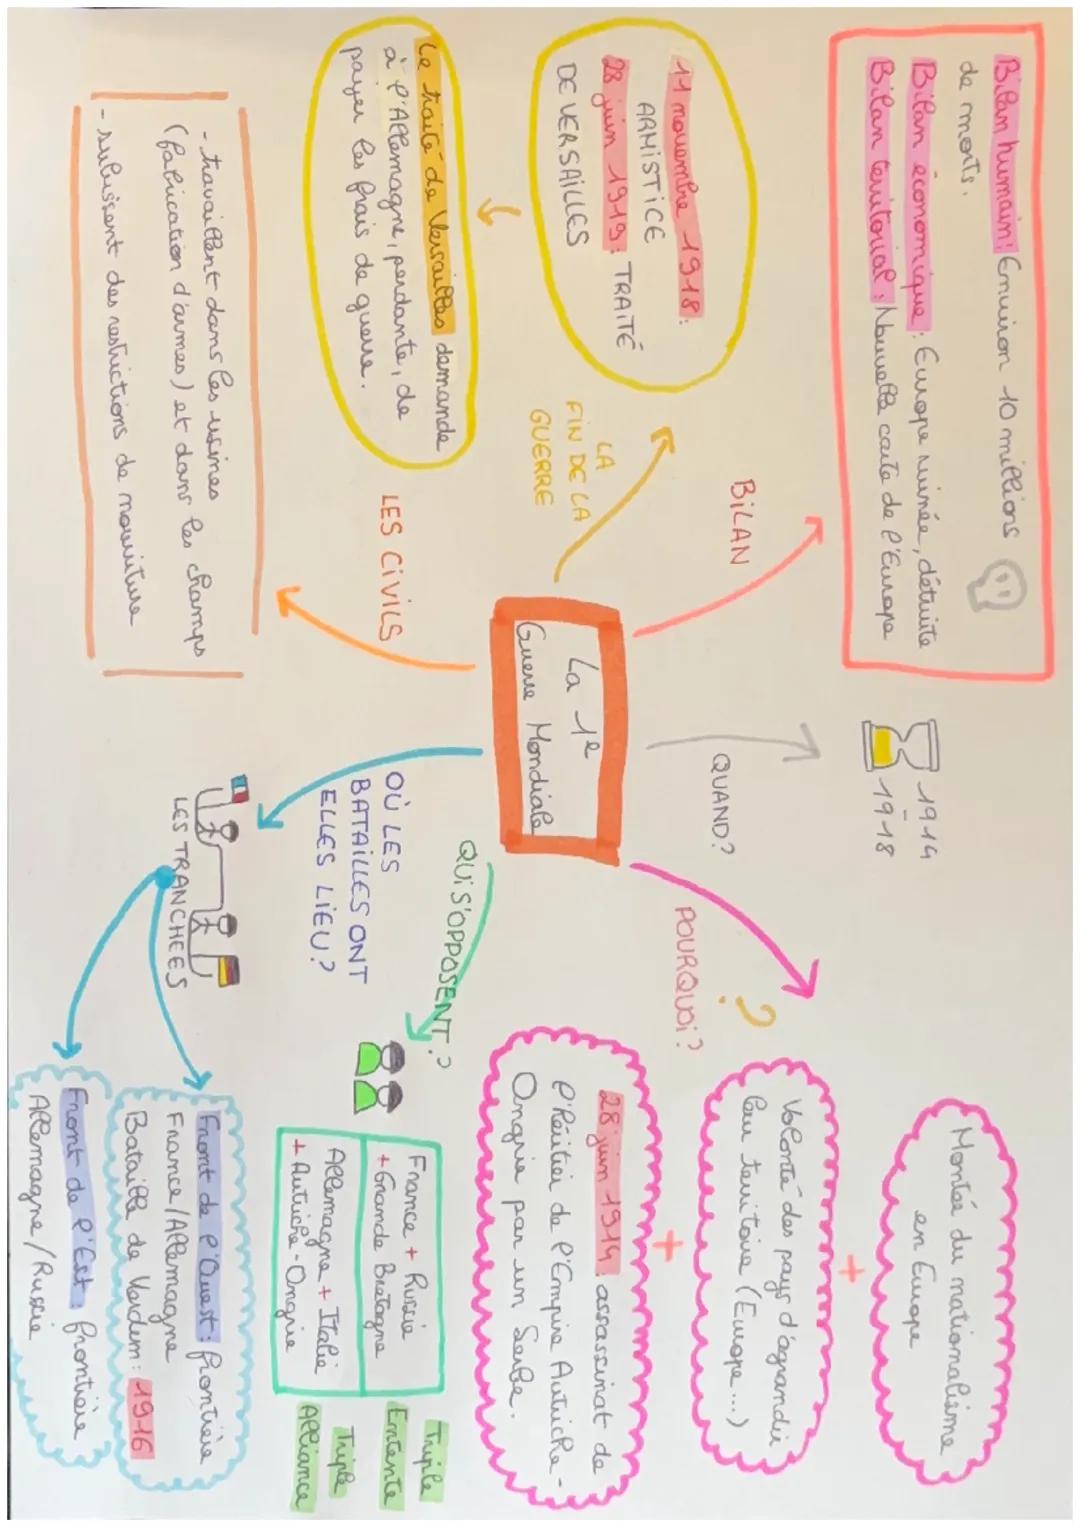 La 1e
Guerre Mondiale
BiLAN
Bilan humain : Environ 10 millions
de morts.
Bilan économique : Europe ruinée, détruite
Bilan territorial : Nouvelle carte de l'Europe
QUAND?
1914
-
1918
POURQUOi?
?
Montée du nationalisme
en Europe
+
Volonté des pays d'agrandir
leur territoire (Europe...)
+
28 juin 1914 : assassinat de
l'héritier de l'Empire Autriche-
Ongrie par un Serbe.
LA
FiN DE LA
GUERRE
11 novembre 1918 :
ARMISTICE
28 juin 1919 : TRAiTÉ
DE VERSAILLES
Le traité de Versailles demande
à l'Allemagne, perdante, de
payer les frais de guerre.
QUi S'OPPOSENT?
France + Russie
+ Grande Bretagne
Triple
Entente
Allemagne + Italie
+ Autriche-Ongrie
Triple
Alliance
LES CiViLS
- travaillent dans les usines
(fabrication d'armes) et dans les champs
- subissent des restrictions de nourriture
OÙ LES
BATAILLES ONT
ELLES LiEU?
LES TRANCHEES
Front de l'Ouest : frontière
France/Allemagne
Bataille de Verdun : 1916
Front de l'Est : frontière
Allemagne/Russie